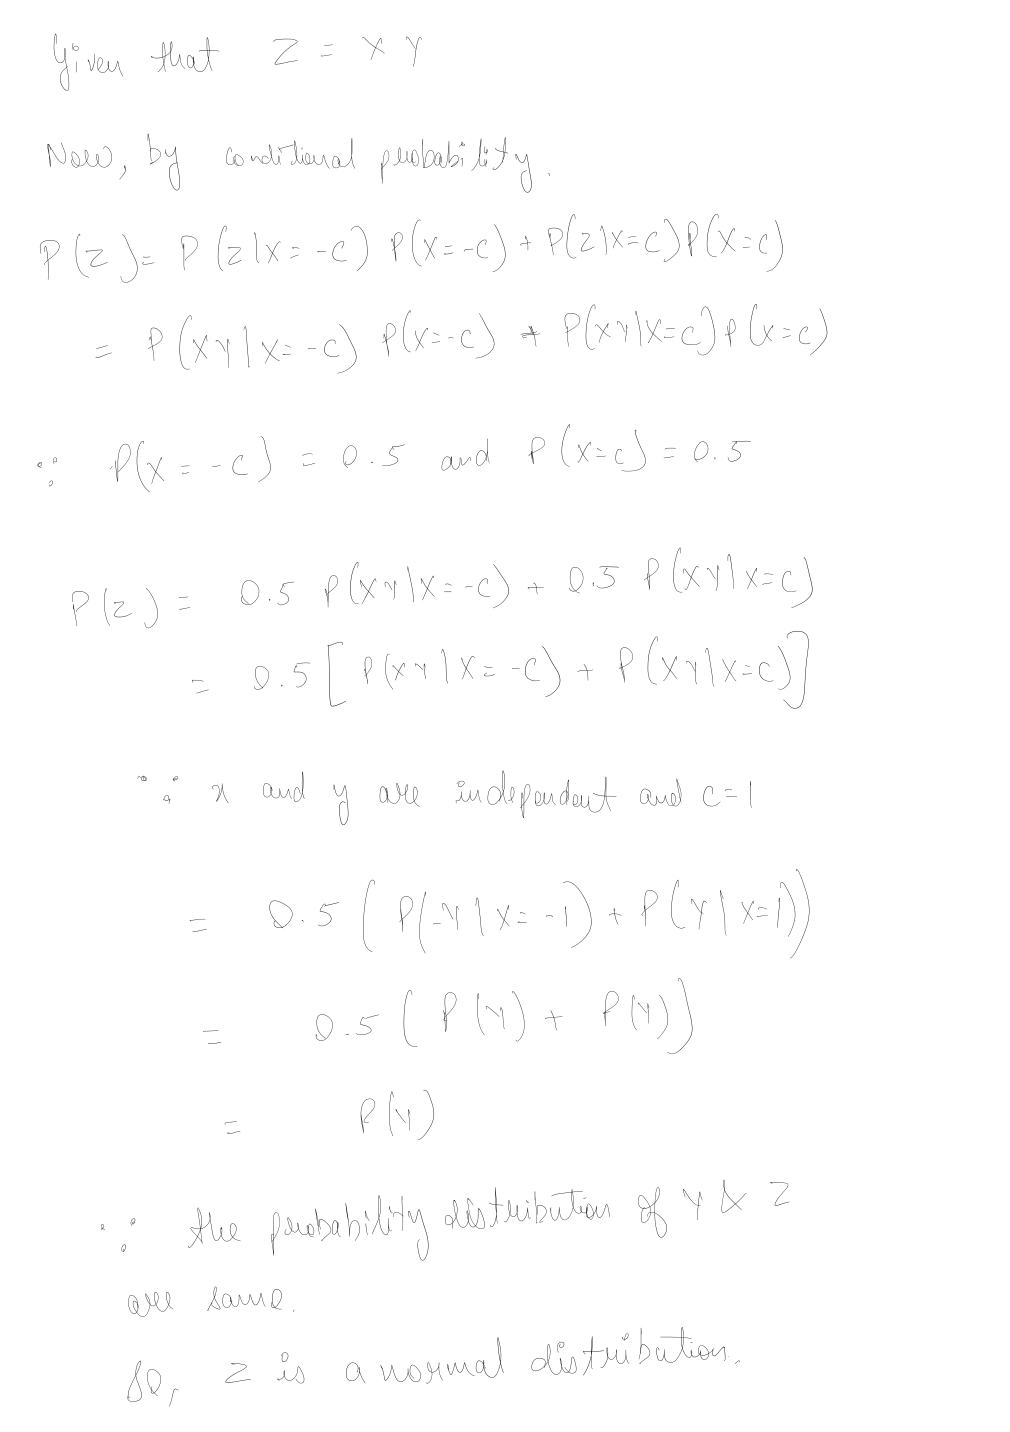 Given that Z = X Y
Now, by conditional probability.
P(Z) = P(Z|X=-C) P(X=-C) + P(Z|X=C)P(X=C)
= P(XY|X=-C) P(X=-C) + P(XY|X=C)P(X=C)
∵ P(X=-C) = 0.5 and P(X=C) = 0.5
P(Z) = 0.5 P(XY|X=-C) + 0.5 P(XY|X=C)
= 0.5 [ P(XY|X=-C) + P(XY|X=C)]
∵ x and y are independent and C=1
= 0.5 ( P(-Y|X=-1) + P(Y|X=1))
= 0.5 ( P(Y) + P(Y))
= P(Y)
∵ the probability distribution of Y & Z
are same.
So, Z is a normal distribution.